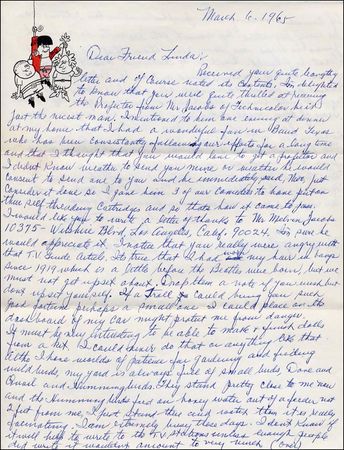 March 6, 1965
Dear Friend Linda:
Received your quite lengthy
letter and of course noted its contents, I'm delighted
to know that you were quite thrilled at hearing
the Projector from Mr Jacobs of Technicolor he is
just the nicest man. I mentioned to him one evening at dinner
at my home that I had a wonderful fan in Texas
who has been consistently following our efforts for a long time
and that I thought that you would love to get a projector and
I didn't know whether to send you more or whether he would
consent to send one to you and he immediately said, "Moe, just
consider it done so I gave him 3 of our comedies to have put on
this self threading Cartridge and so that's how it came to pass.
I would like you to write a letter of thanks to Mr Melvin Jacobs
10375 - Wilshire Blvd, Los Angeles, Calif. 90024. I'm sure he
would appreciate it. I notice that you really were angry with
that T.V. Guide Article. It's true that I had my hair in bangs
since 1919 which is a little before the Beatles were born, but we
must not get upset about. Drop them a note if you wish but
don't upset yourself. If a Troll could bring you such
good fortune perhaps a small one I could place on the
dashboard of my Car might protect me from danger.
It must be very interesting to be able to make & finish dolls
from a Kit. I could never do that or anything like that
altho I have worlds of patience for gardening and feeding
wild birds, my yard is always full of small birds, Dove and
Quail and Hummingbirds. They stand pretty close to me now
and the Hummingbirds feed on honey water out of a feeder not
2 feet from me, I just stand there and watch them it is really
fascinating. I am extremely busy these days. I don't know if
it will help to write to the T.V. stations unless enough people
did write it wouldn't amount to very much (over)